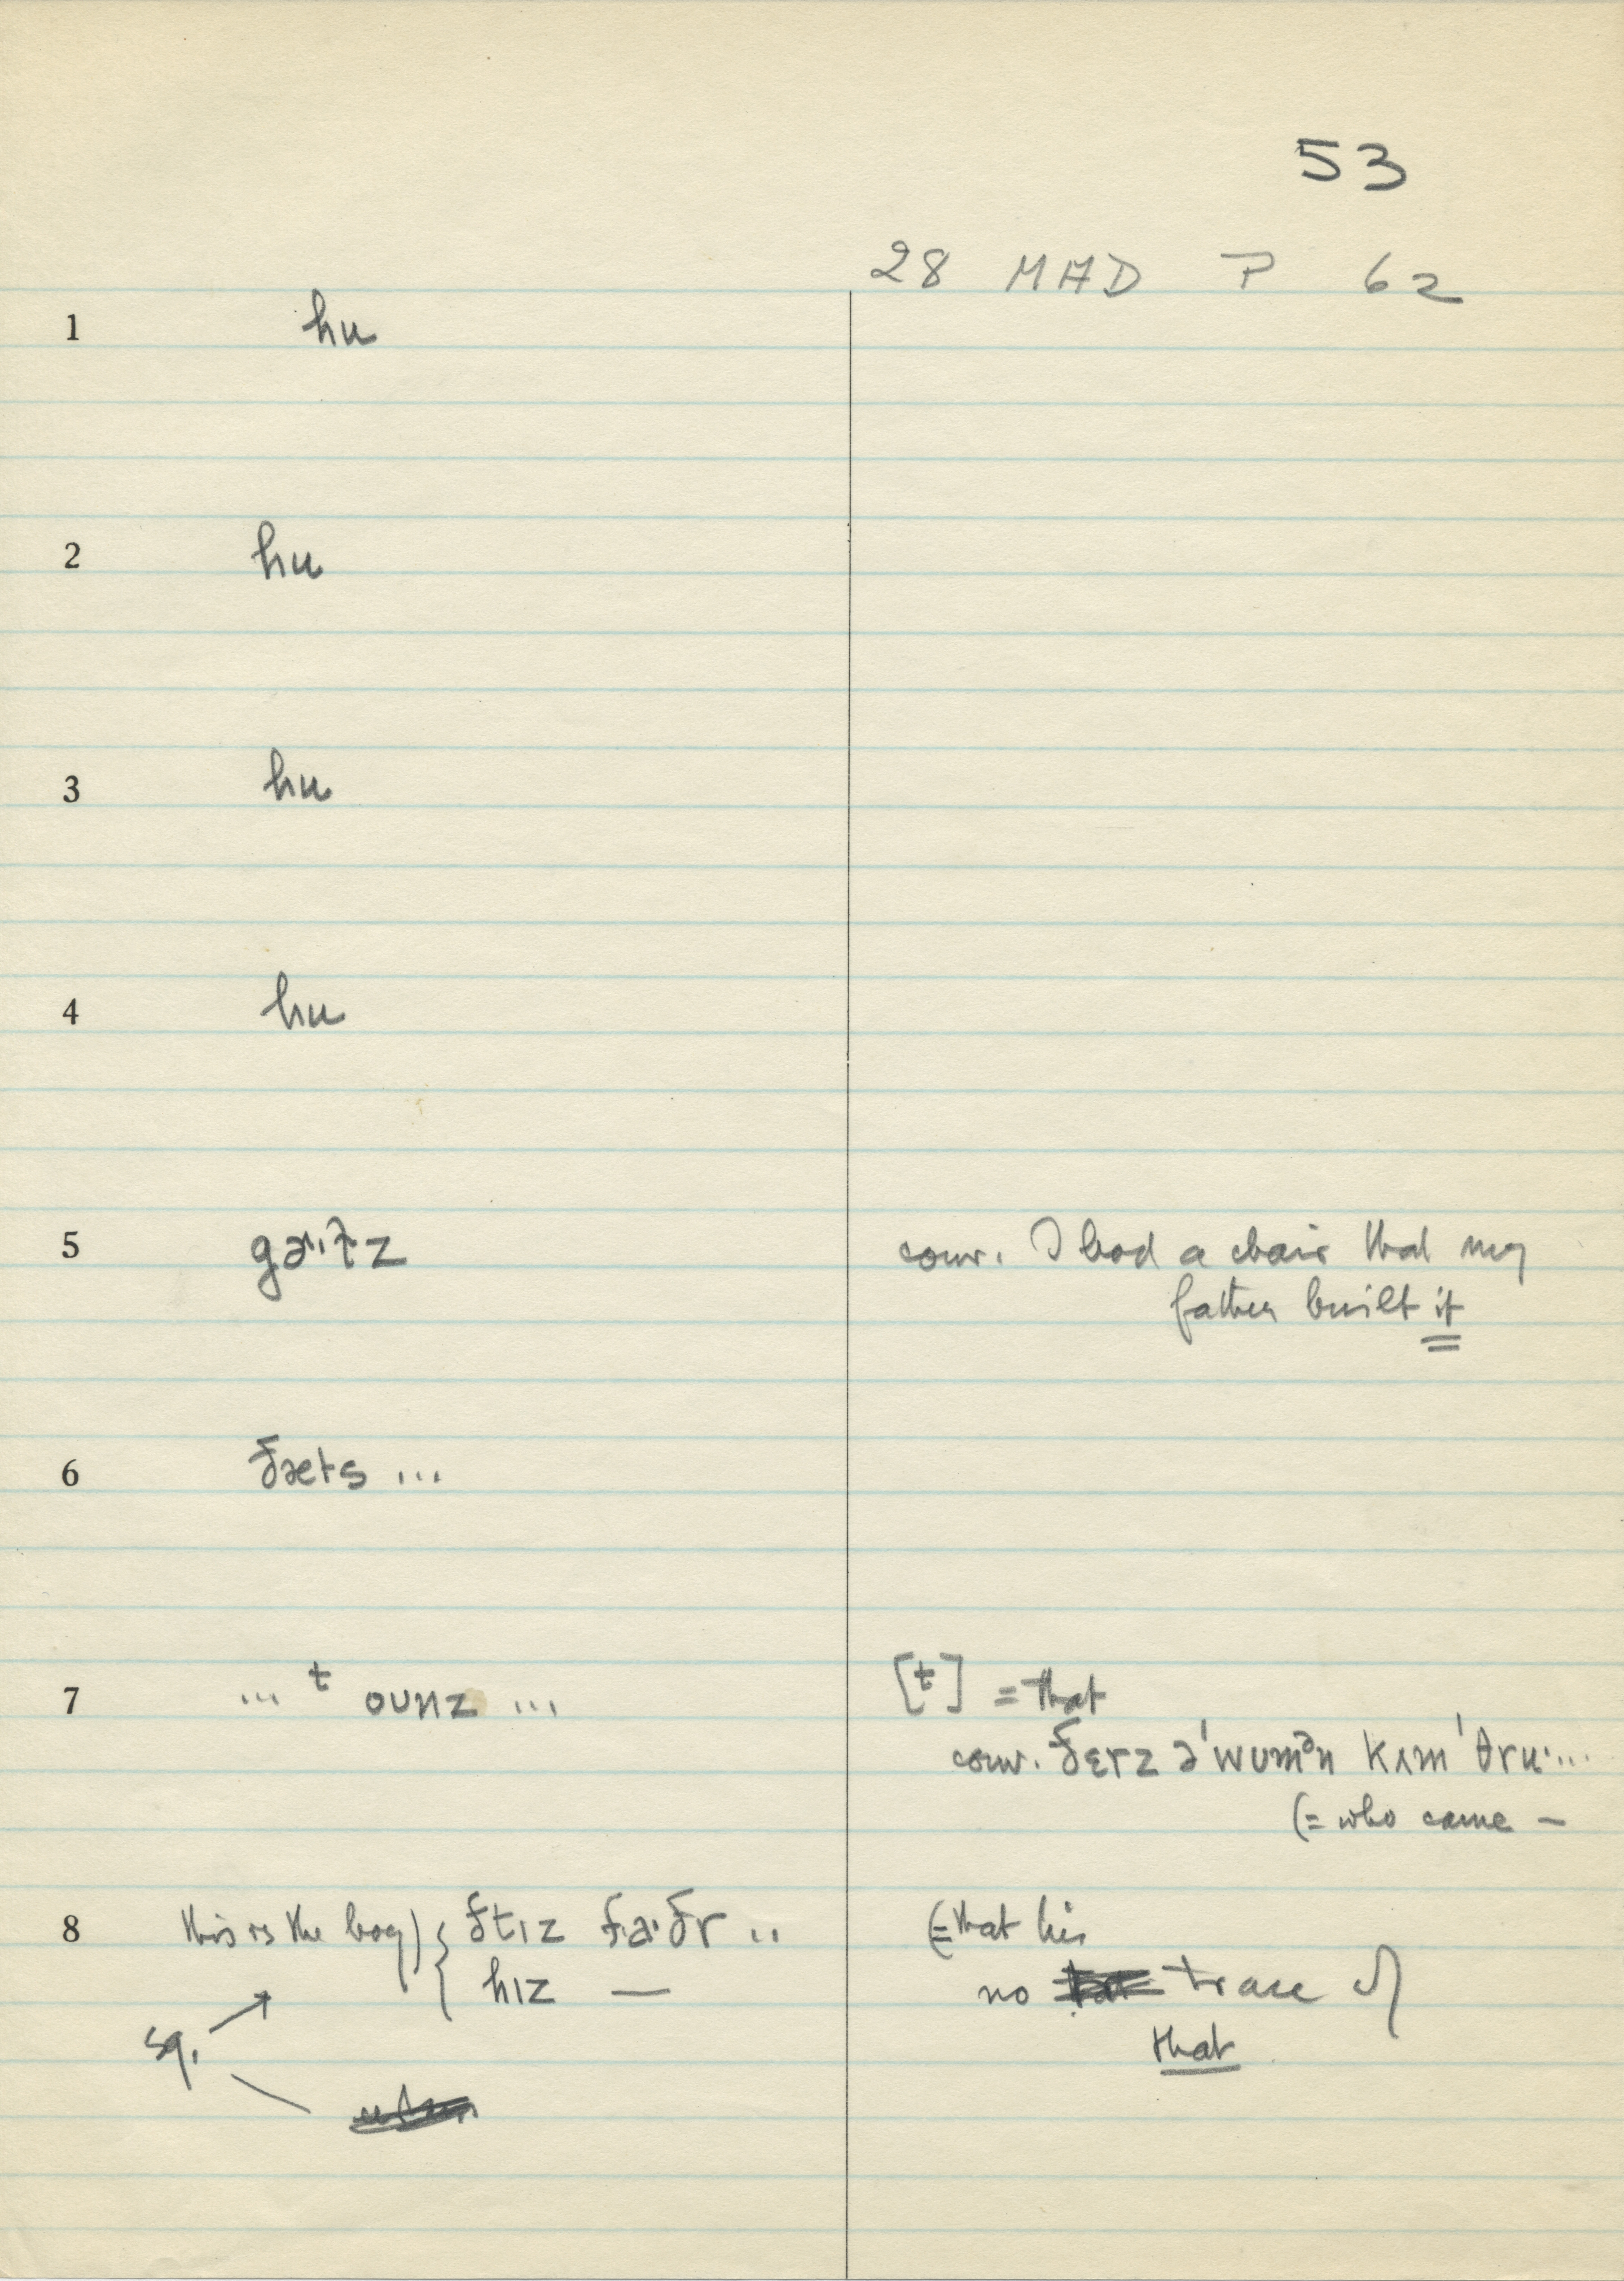 53
28 MAD P 62
1 hu
2 hu
3 hu
4 hu
5 conv. I had a chair that my
father built it
6 ðæts ...
7 ... t ounz ... [t] = that
conv. ðɛrz ə'wumən kʌm 'θru· ...
(= who came –
8 this is the boy) { ðtɪz fa·ðr .. (= that his
hɪz — no trace of
sq. that